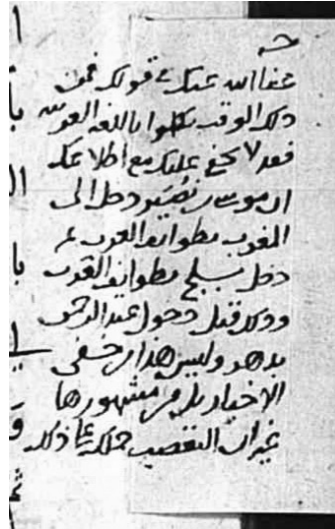 عفا الله عنك في قولك فمن
ذلك الوقت تكلموا باللغه العربيه
فقد لا يخفى عليك مع اطلاعك
ان موسى بن نُصَير دخل الى
المغرب بطوايف العرب ثم
دخل بلج بطوايف العرب
وذلك قبل دخول عبد الرحمن
بدهر وليس هذا من خفى
الاخبار بل من مشهورها
غير ان التعصب حملك على ذلك